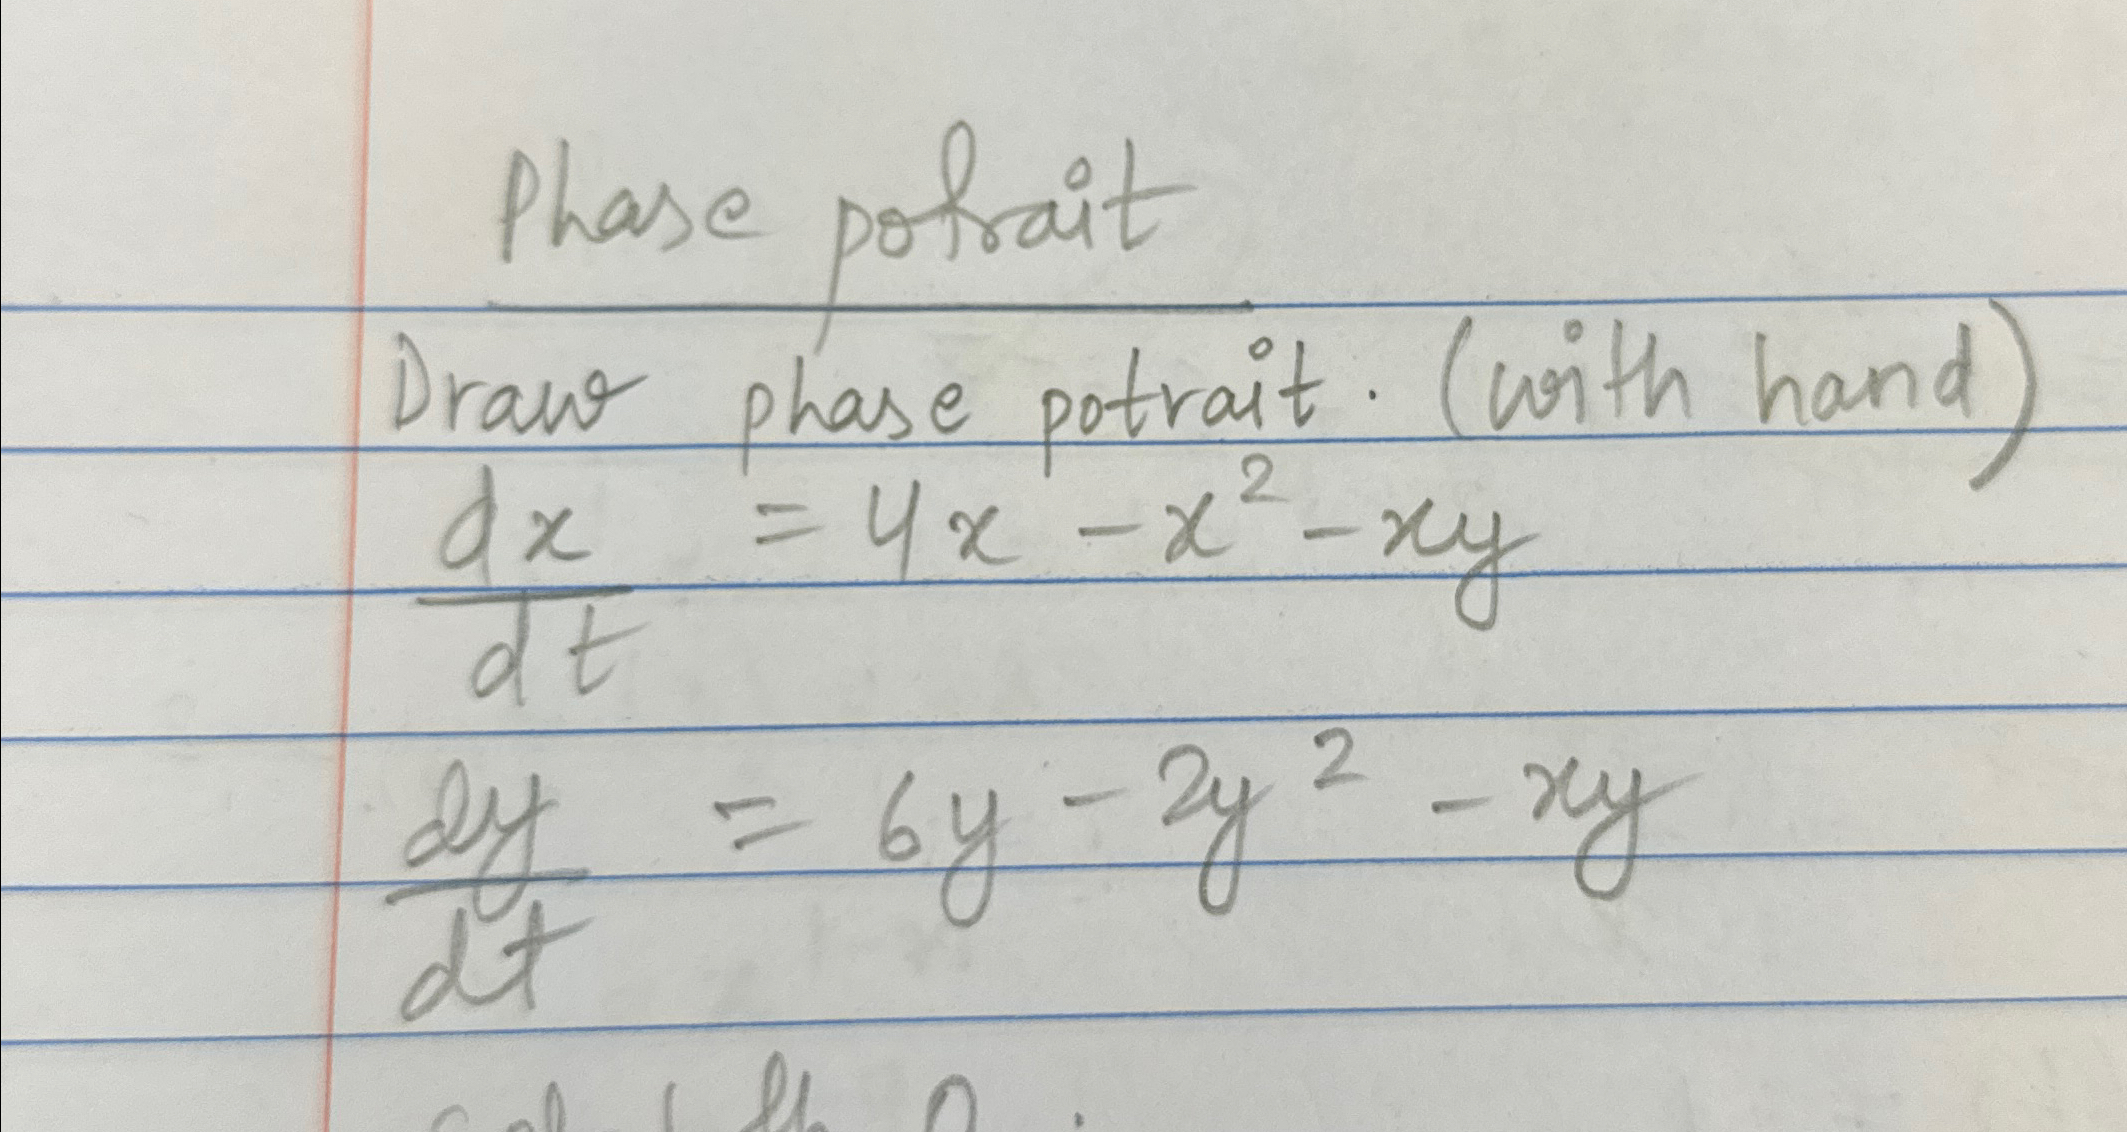 Phase potrait
Draw phase potrait. (with hand)
dx/dt = 4x - x² - xy
dy/dt = 6y - 2y² - xy